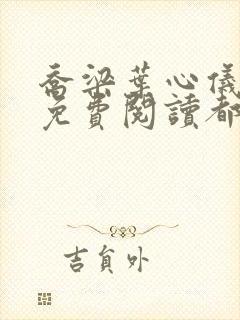 喬梁葉心儀
免費閱讀都
吉貟外